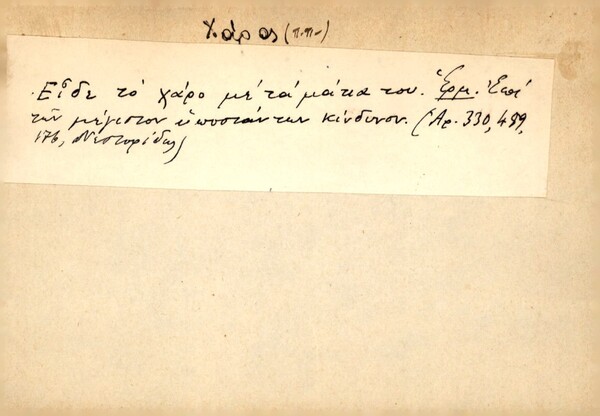 Χάρος (π.π.)
Εἶδε τὸ χάρο μὲ τὰ μάτια του. Ἑρμ. Ἐπὶ
τῶν μέγιστον ὑποστάντων κίνδυνον. (Ἀρ. 330, 489,
176, Νεστορίδης)